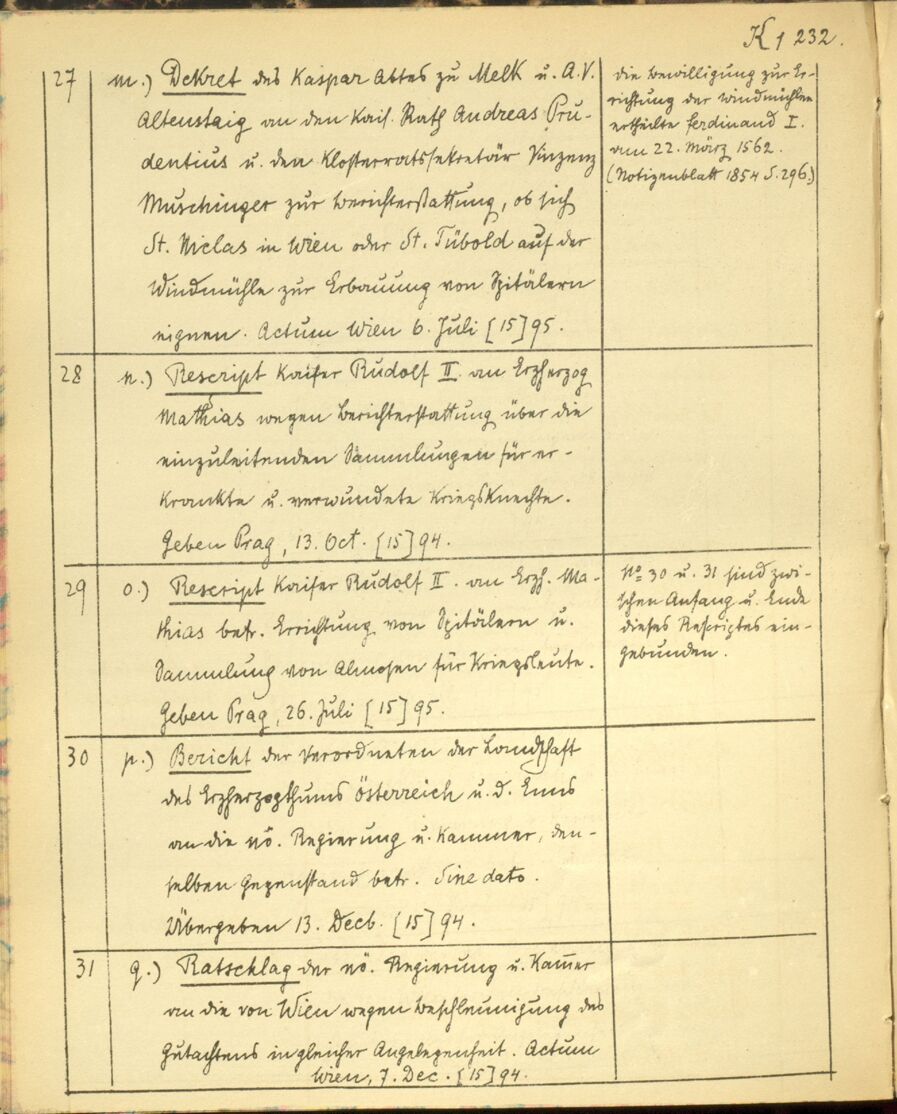 K 1 232.
27 m.) Dekret des Kaspar Abtes zu Melk u. A. V.
Altenstaig an den Kais. Rath Andreas Pru-
dentius u. den Klosterratssekretär Vinzenz
Muschinger zur Berichterstattung, ob sich
St. Niclas in Wien oder St. Tübold auf der
Windmühle zur Erbauung von Spitälern
eignen. Actum Wien 6. Juli [15]95.
die Bewilligung zur Er-
richtung der Windmühlen
ertheilte Ferdinand I.
am 22. März 1562.
(Notizenblatt 1854 S. 296.)
28 n.) Rescript Kaiser Rudolf II. an Erzherzog
Mathias wegen Berichterstattung über die
einzuleitenden Sammlungen für er-
krankte u. verwundete Kriegsknechte.
Geben Prag, 13. Oct. [15]94.
29 o.) Rescript Kaiser Rudolf II. an Erzh. Ma-
thias betr. Errichtung von Spitälern u.
Sammlung von Almosen für Kriegsleute.
Geben Prag, 26. Juli [15]95.
No 30 u. 31 sind zwi-
schen Anfang u. Ende
dieses Rescriptes ein-
gebunden.
30 p.) Bericht der Verordneten der Landschaft
des Erzherzogthums Österreich u. d. Enns
an die nö. Regierung u. Kammer, den-
selben Gegenstand betr. Sine dato.
Übergeben 13. Decb. [15]94.
31 q.) Ratschlag der nö. Regierung u. Kam̄er
an die von Wien wegen Beschleunigung des
Gutachtens in gleicher Angelegenheit. Actum
Wien, 7. Dec. [15]94.